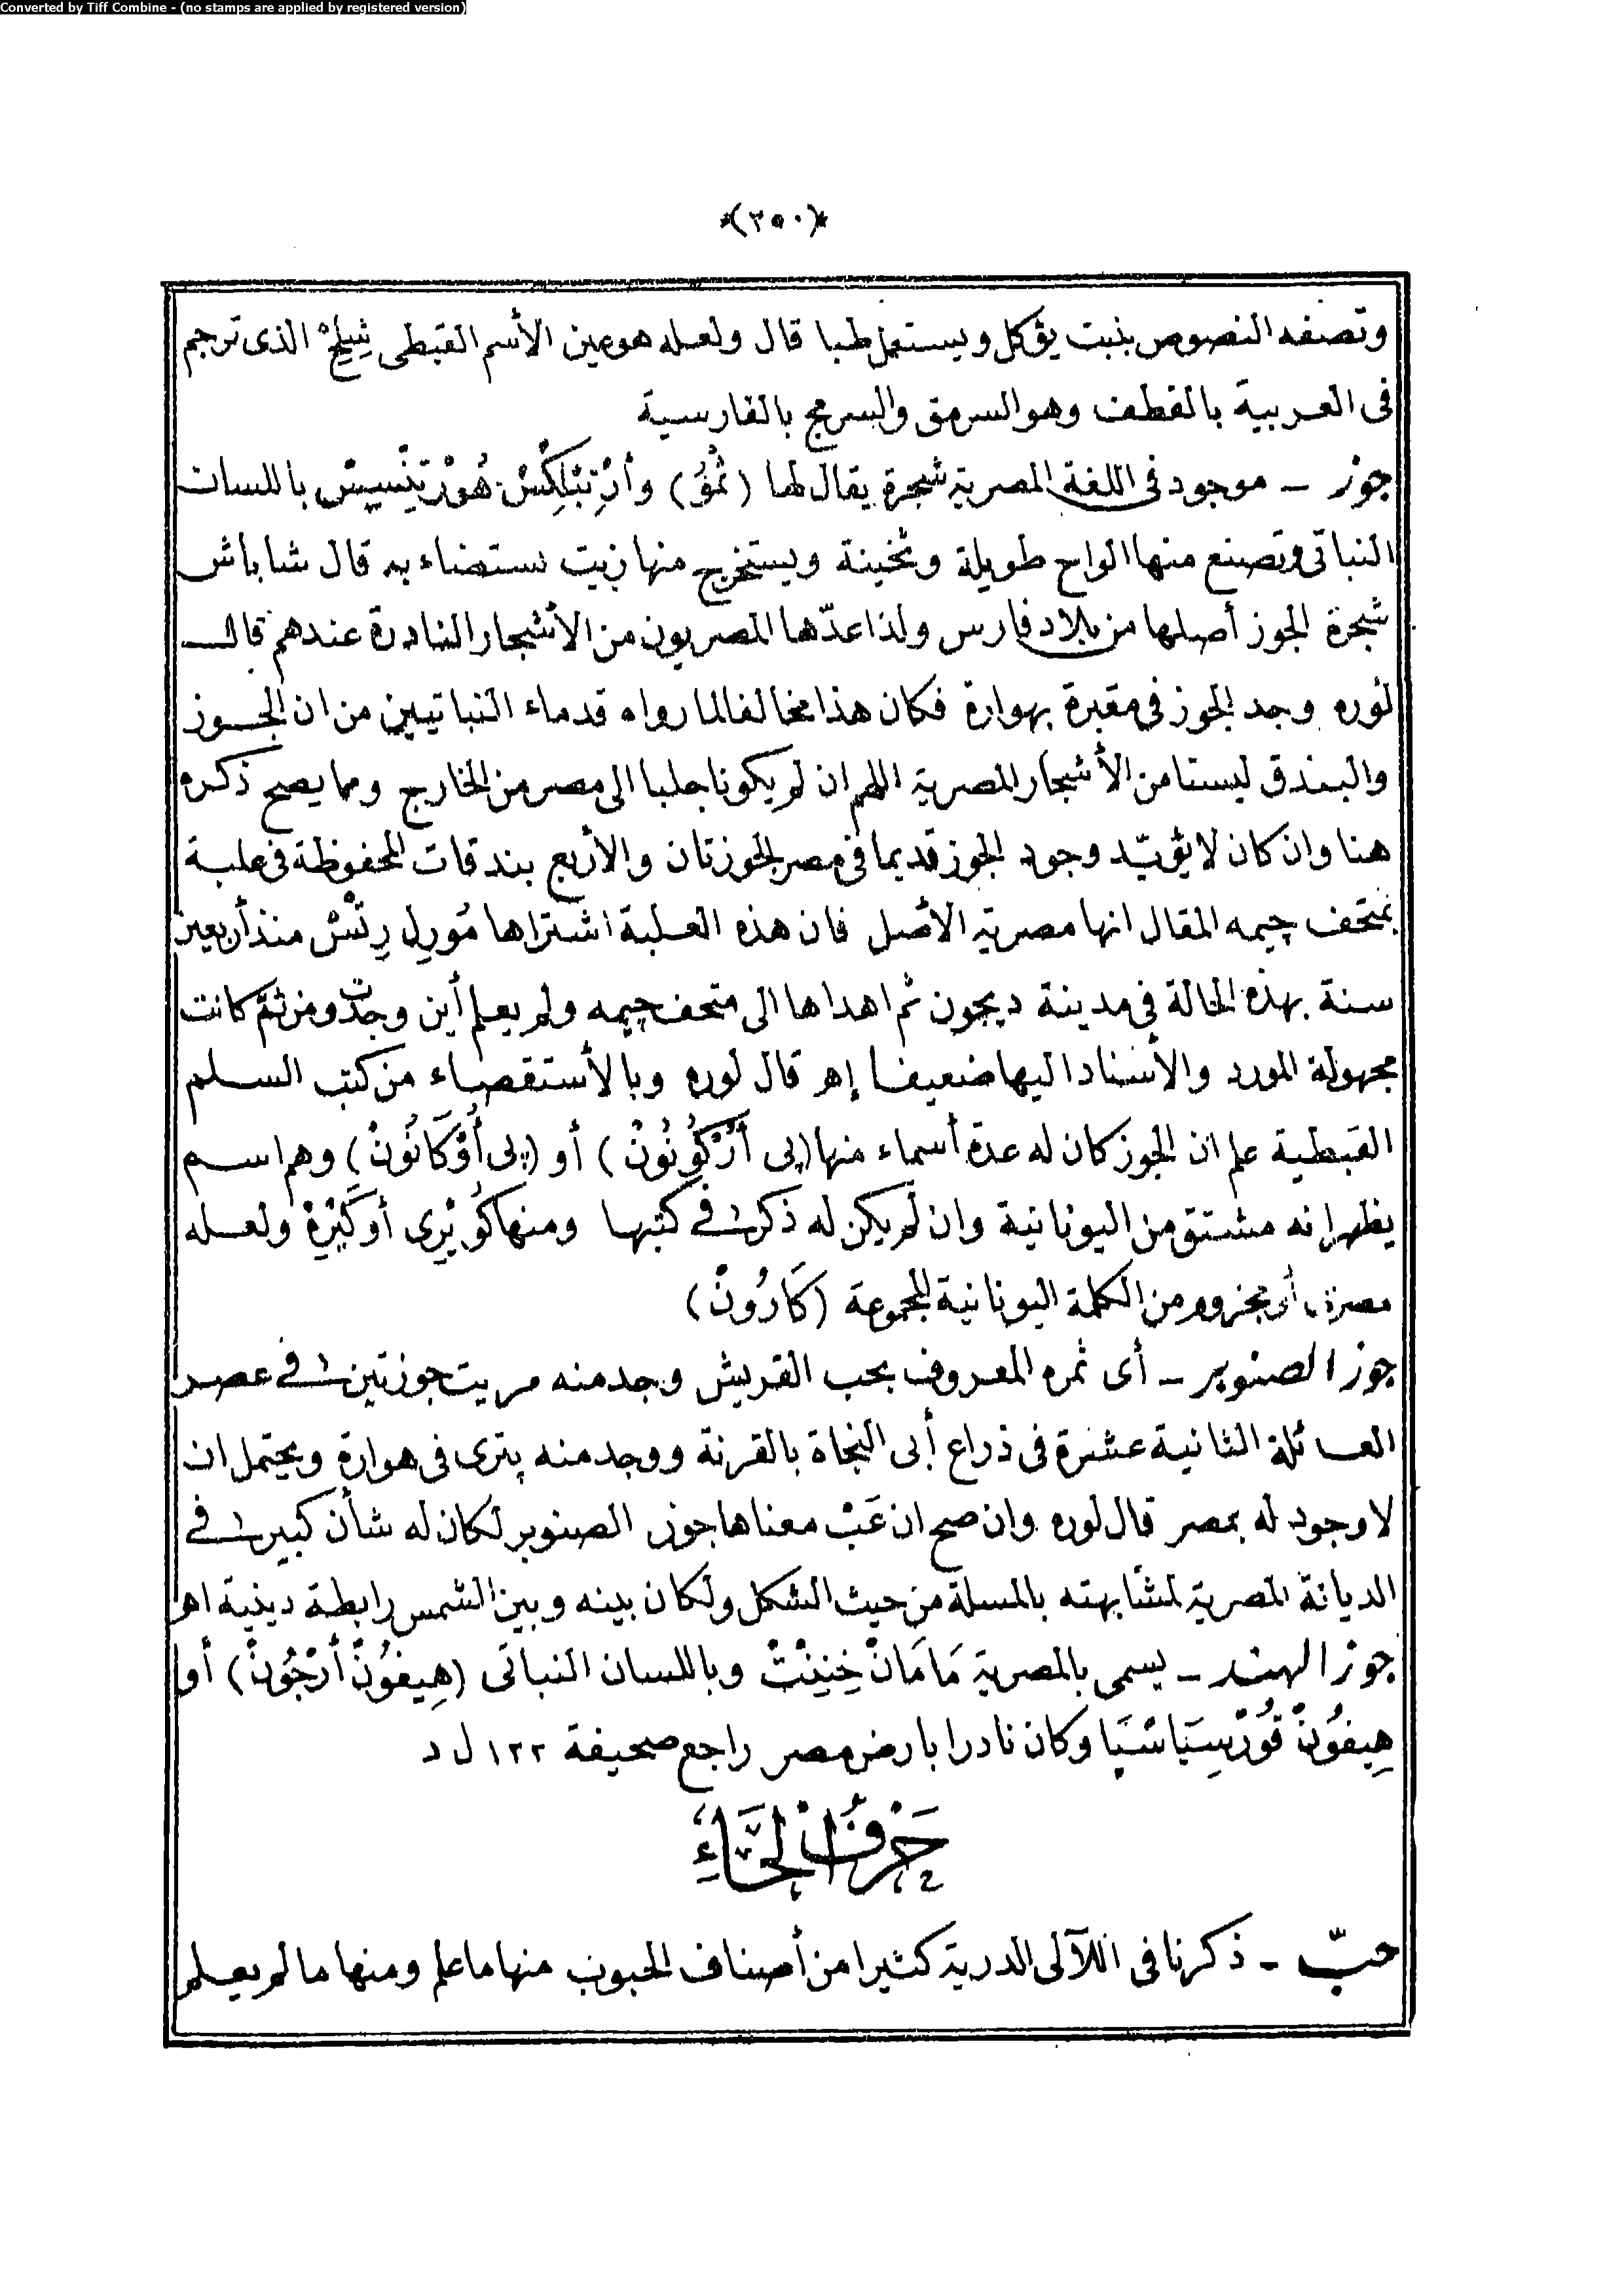 Converted by Tiff Combine - (no stamps are applied by registered version)
*(٢٥٠)*
وتصفه النصوص بنبت يؤكل ويستعمل طبا قال ولعله هو عين الأسم القبطى شِيلِخْ الذى ترجم
فى العربية بالقطف وهو السرمق والسرمج بالفارسية
جوز – موجود فى اللغة المصرية شجرة يقال لها (نُمْقُ) وأَرْتِتْبَلِكِسْ هُورْتِنْسِيسْ باللسان
النباتى وتصنع منها الواح طويلة وثخينة ويستخرج منها زيت يستضاء به قال شاباش
شجرة الجوز أصلها من بلاد فارس ولذا عدّها المصريون من الأشجار النادرة عندهم قال
لوره وجد الجوز فى مقبرة بهوارة فكان هذا مخالفا لما رواه قدماء النباتيين من ان الجوز
والبندق ليستا من الأشجار المصرية اللهم ان لم يكونا جلبا الى مصر من الخارج ومما يصح ذكره
هنا وان كان لا يؤيّد وجود الجوز قديما فى مصر الجوزتان والأربع بندقات المحفوظة فى علبة
بمتحف چيمه المقال انها مصرية الأصل فان هذه العلبة اشتراها مَورِل رِتْسْ منذ أربعين
سنة بهذه الحالة فى مدينة ديجون ثم اهداها الى متحف چيمه ولم يعلم أين وجدت ومن ثم كانت
مجهولة المورد والأسناد اليها ضعيفا إهـ قال لوره وبالأستقصاء من كتب السلم
القبطية علم ان الجوز كان له عدة أسماء منها (پى أَرْكُونُونْ) أو (پى أُوْكَانُونْ) وهم اسم
يظهر انه مشتق من اليونانية وان لم يكن له ذكر فى كتبها ومنها كُويْرِى أو كَيْرِهْ ولعله
مصرى أو مجزوم من الكلمة اليونانية المجموعة (كَارُونْ)
جوز الصنوبر – أى ثمره المعروف بحب القريش وجد منه مريت جوزتين فى عصر
العائلة الثانية عشرة فى ذراع أبى النجاة بالقرنة ووجد منه پترى فى هوارة ويحتمل ان
لا وجود له بمصر قال لوره وان صح ان عَبْ معناها جوز الصنوبر لكان له شأن كبير فى
الديانة المصرية لمشابهته بالمسلة من حيث الشكل ولكان بينه وبين الشمس رابطة دينية اهـ
جوز الهند – يسمى بالمصرية مَامَانْ خِنِنْتْ وباللسان النباتى (هِيفُونْ أَرْجُونْ) أو
هِيفُونْ قُورْسِيَاسْيَا وكان نادرا بارض مصر راجع صحيفة ١٢٢ ل د
حَرْفُ الْحَاءِ
حبّ – ذكرنا فى اللآلى الدرية كثيرا من أصناف الحبوب منها ما علم ومنها ما لم يعلم